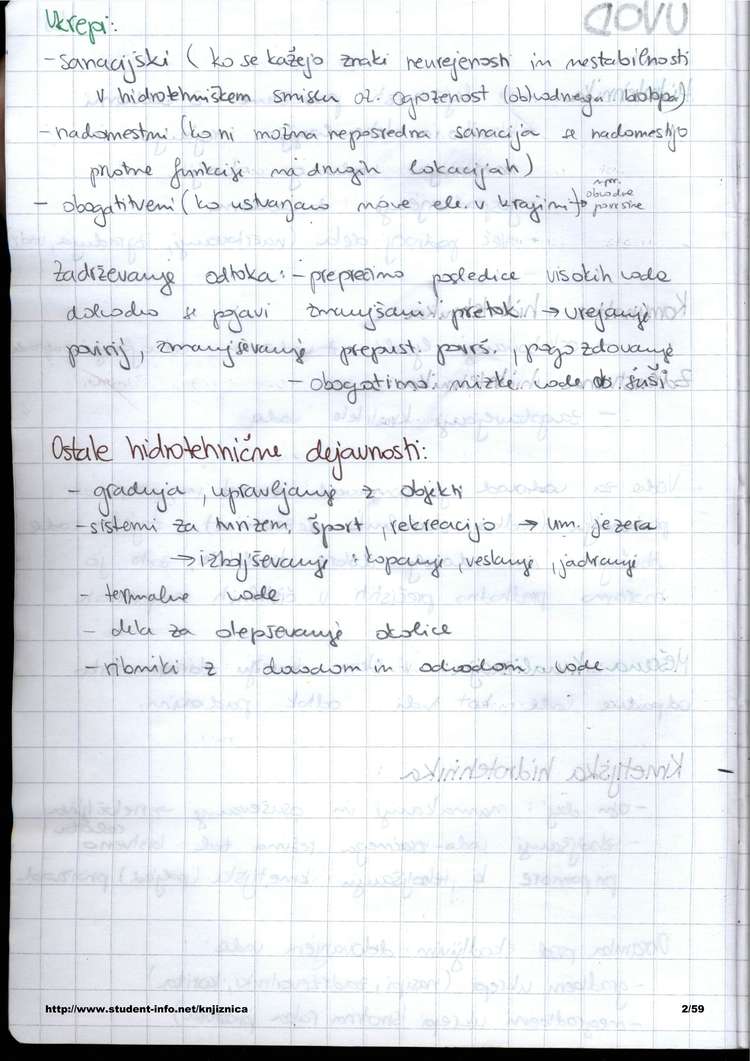 Ukrepi:
- sanacijski (ko se kažejo znaki neurejenosti in nestabilnosti
v hidrotehniškem smislu oz. ogroženost (ob)vodnega biotopa)
- nadomestni (ko ni možna neposredna sanacija se nadomestijo
prvotne funkcije na drugih lokacijah)
- obogatitveni (ko ustvarjamo nove ele. v krajini → npr. obvodne površine
Zadrževanje odtoka: - preprečimo posledice visokih voda
dolvodno se pojavi zmanjšani pretok → urejanje
povirij, zmanjševanje prepust. površ., pogozdovanje
- obogatimo nizke vode ob suši
Ostale hidrotehnične dejavnosti:
- gradnja, upravljanje z objekti
- sistemi za turizem, šport, rekreacijo → um. jezera
→ izboljševanje: kopanje, veslanje, jadranje
- termalne vode
- dela za olepševanje okolice
- ribniki z dovodom in odvodom vode
http://www.student-info.net/knjiznica 2/59